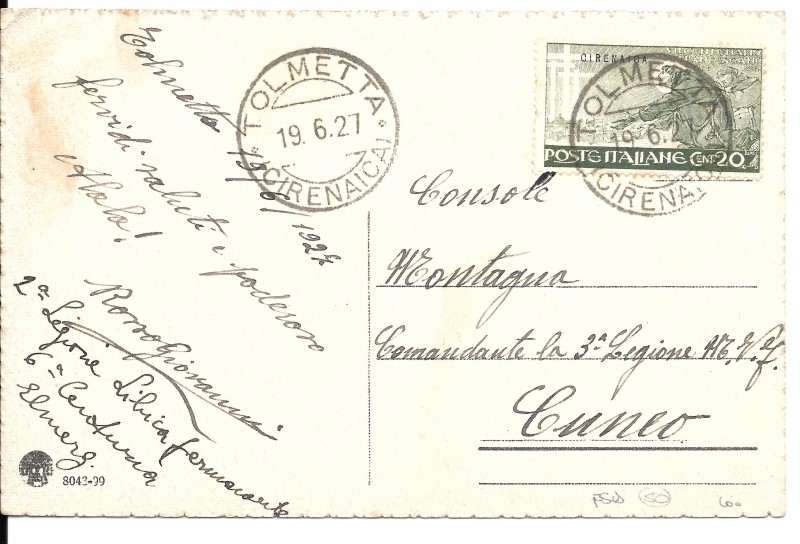 Tolmetta 19/6/1927
fervidi saluti e poderoso
Alala!
Rosso Giovanni
2a Legione Libica Permanente
6a Centuria
Elmerg.
8043-99
TOLMETTA
19.6.27
(CIRENAICA)
CIRENAICA
VII CENTENARIO
FRANCESCANO
POSTE ITALIANE CENT 20
TOLMETTA
19.6.27
(CIRENAICA)
Console
Montagna
Comandante la 3a Legione M.V.f.
Cuneo
50